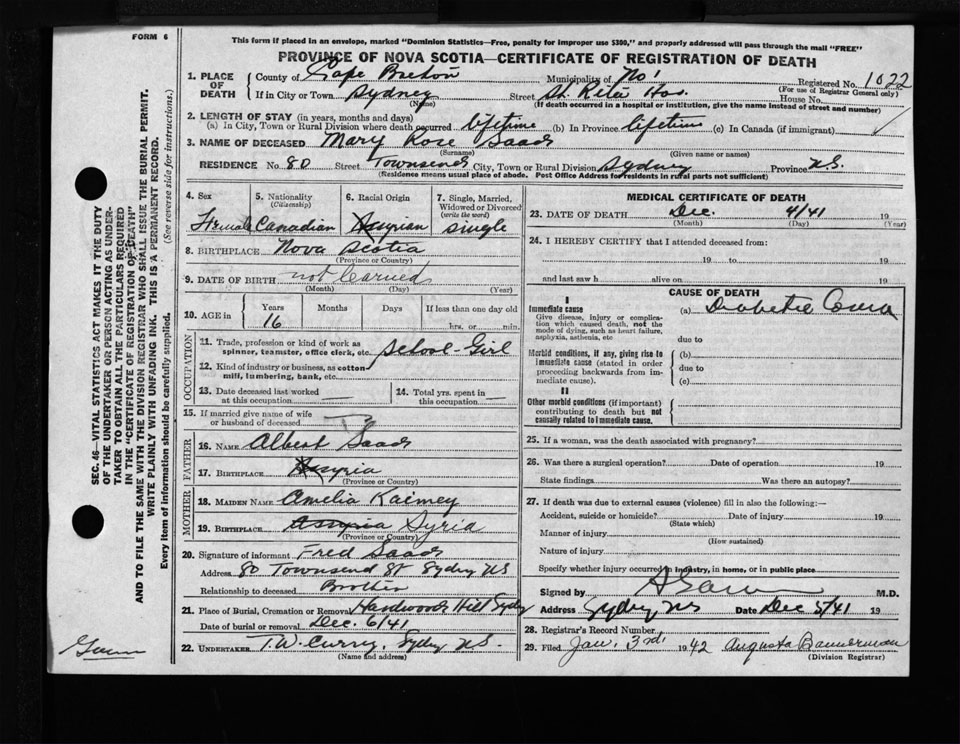 FORM 6
This form if placed in an envelope, marked "Dominion Statistics—Free, penalty for improper use $300," and properly addressed will pass through the mail "FREE"
PROVINCE OF NOVA SCOTIA—CERTIFICATE OF REGISTRATION OF DEATH
SEC. 46—VITAL STATISTICS ACT MAKES IT THE DUTY
OF THE UNDERTAKER OR PERSON ACTING AS UNDER-
TAKER TO OBTAIN ALL THE PARTICULARS REQUIRED
IN THE "CERTIFICATE OF REGISTRATION OF DEATH"
AND TO FILE THE SAME WITH THE DIVISION REGISTRAR WHO SHALL ISSUE THE BURIAL PERMIT.
WRITE PLAINLY WITH UNFADING INK. THIS IS A PERMANENT RECORD.
Every item of information should be carefully supplied. (See reverse side for instructions.)
1. PLACE OF DEATH
County of Cape Breton Municipality of No 1 Registered No. 1022
(For use of Registrar General only)
If in City or Town Sydney Street St. Rita Hos. House No.
(Name) (If death occurred in a hospital or institution, give the name instead of street and number)
2. LENGTH OF STAY (in years, months and days)
(a) In City, Town or Rural Division where death occurred lifetime (b) In Province lifetime (c) In Canada (if immigrant)
3. NAME OF DECEASED Mary Rose Saad
(Surname) (Given name or names)
RESIDENCE No. 80 Street Townsend City, Town or Rural Division Sydney Province N.S.
(Residence means usual place of abode. Post Office Address for residents in rural parts not sufficient)
4. Sex 5. Nationality (Citizenship) 6. Racial Origin 7. Single, Married, Widowed or Divorced (write the word)
Female Canadian Assyrian single
8. BIRTHPLACE Nova Scotia
(Province or Country)
9. DATE OF BIRTH not learned
(Month) (Day) (Year)
10. AGE in Years Months Days If less than one day old
16 hrs. or min.
OCCUPATION
11. Trade, profession or kind of work as spinner, teamster, office clerk, etc. School-Girl
12. Kind of industry or business, as cotton mill, lumbering, bank, etc.
13. Date deceased last worked at this occupation
14. Total yrs. spent in this occupation
15. If married give name of wife or husband of deceased
FATHER
16. NAME Albert Saad
17. BIRTHPLACE Assyria
(Province or Country)
MOTHER
18. MAIDEN NAME Amelia Kaimey
19. BIRTHPLACE Assyria Syria
(Province or Country)
20. Signature of informant Fred Saad
Address 80 Townsend St Sydney NS
Relationship to deceased Brother
21. Place of Burial, Cremation or Removal Hardwood Hill Sydney
Date of burial or removal Dec. 6/41
22. UNDERTAKER T.W. Curry, Sydney N.S.
(Name and address)
MEDICAL CERTIFICATE OF DEATH
23. DATE OF DEATH Dec. 4/41 19
(Month) (Day) (Year)
24. I HEREBY CERTIFY that I attended deceased from:
19 to 19
and last saw h alive on 19
CAUSE OF DEATH
I
Immediate cause (a) Diabetic Coma
Give disease, injury or complication which caused death, not the mode of dying, such as heart failure, asphyxia, asthenia, etc
due to
Morbid conditions, if any, giving rise to immediate cause (stated in order proceeding backwards from immediate cause).
(b)
due to
(c)
II
Other morbid conditions (if important) contributing to death but not causally related to immediate cause.
25. If a woman, was the death associated with pregnancy?
26. Was there a surgical operation? Date of operation 19
State findings Was there an autopsy?
27. If death was due to external causes (violence) fill in also the following:—
Accident, suicide or homicide? Date of injury 19
(State which)
Manner of injury
(How sustained)
Nature of injury
Specify whether injury occurred in industry, in home, or in public place
Signed by M.D.
Address Sydney NS Date Dec 5/41 19
28. Registrar's Record Number
29. Filed Jan, 3rd 1942 Augusta Bannerman
(Division Registrar)